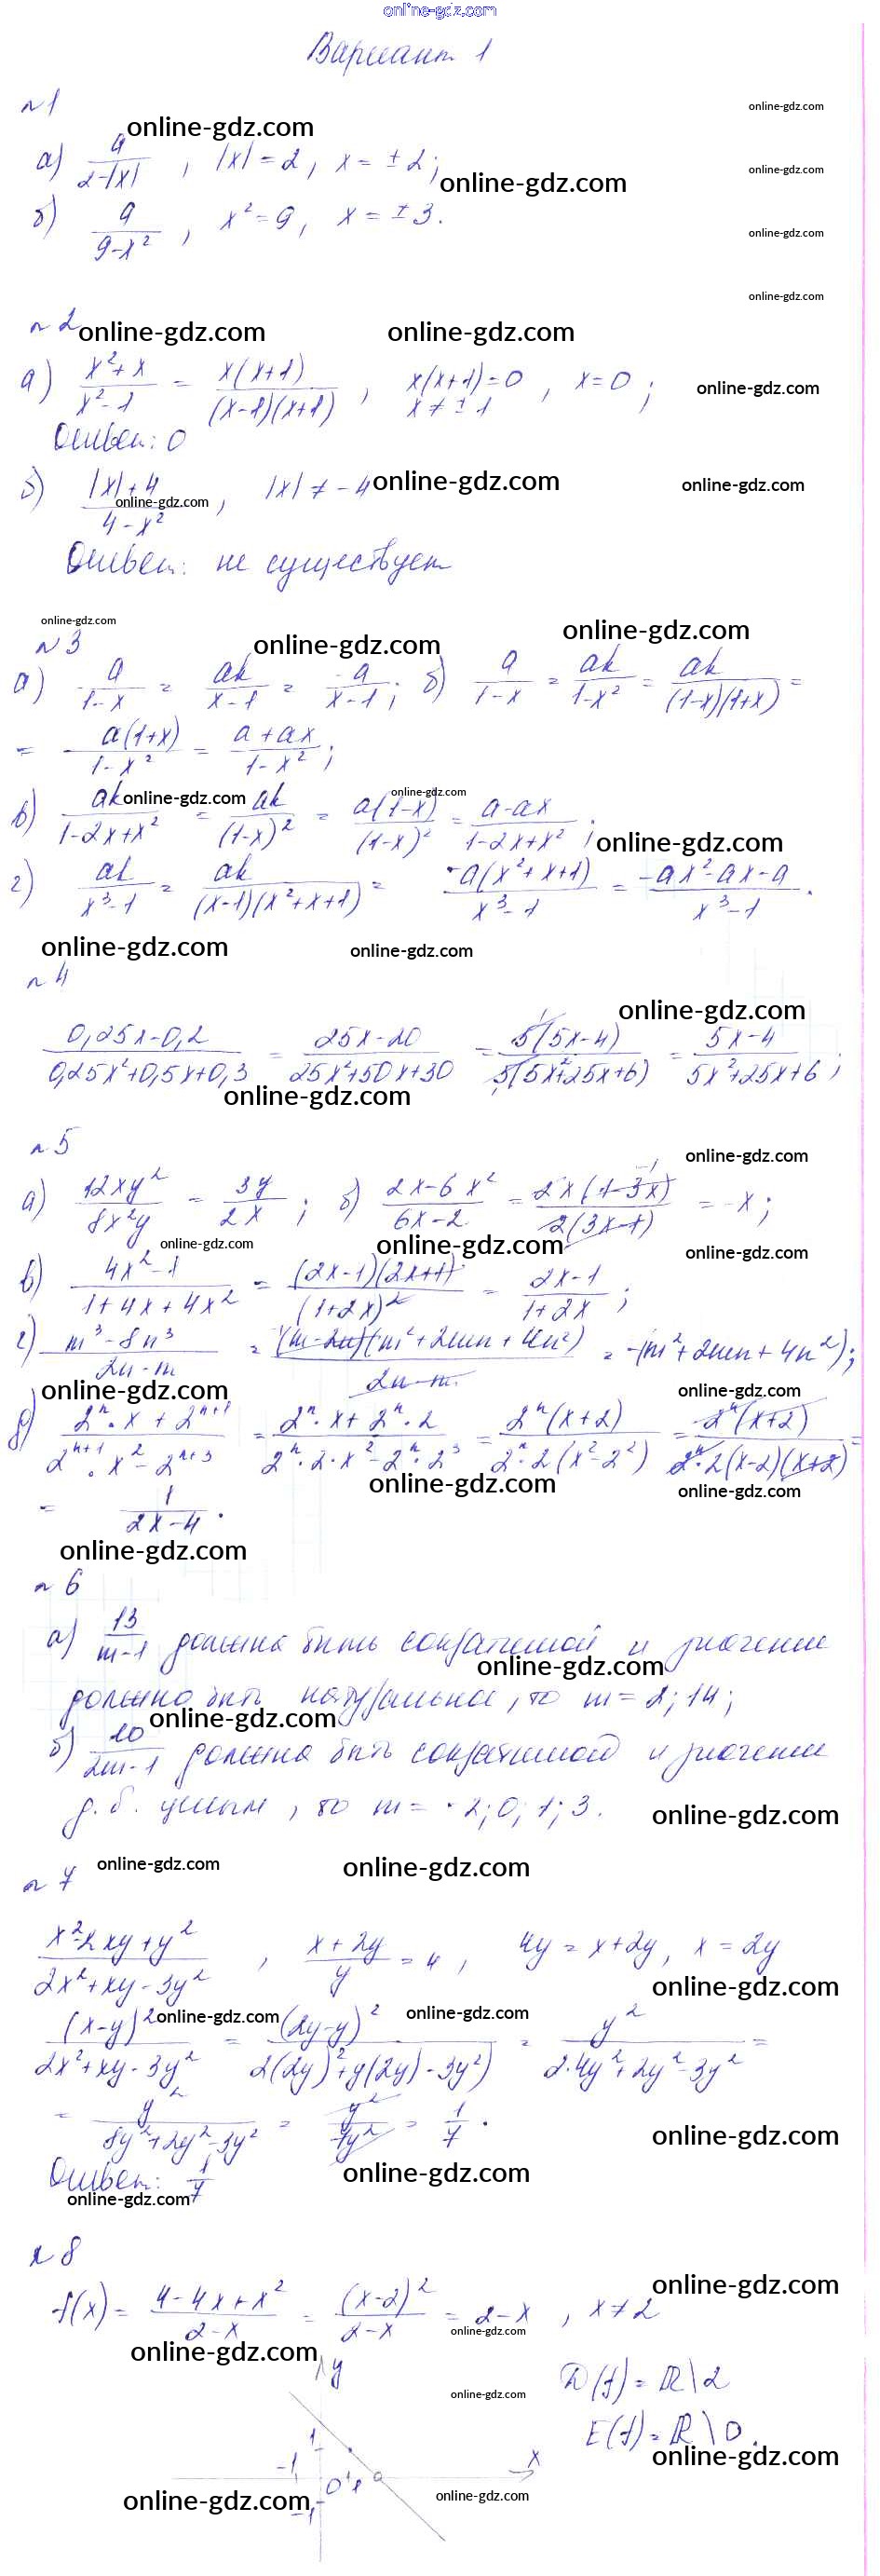 online-gdz.com
Вариант 1
№1
online-gdz.com
online-gdz.com
а) a/(2-|x|), |x| = 2, x = ±2;
online-gdz.com
online-gdz.com
б) a/(9-x²), x² = 9, x = ±3.
online-gdz.com
online-gdz.com
№2
online-gdz.com online-gdz.com
а) (x²+x)/(x²-1) = x(x+1)/((x-1)(x+1)), x(x+1)=0, x≠±1, x=0;
online-gdz.com
Ответ: 0
б) (|x|+4)/(4-x²), |x| ≠ -4
online-gdz.com online-gdz.com
online-gdz.com
Ответ: не существует
online-gdz.com
№3
online-gdz.com online-gdz.com
а) a/(1-x) = ak/(x-1) = -a/(x-1); б) a/(1-x) = ak/(1-x²) = ak/((1-x)(1+x)) =
= a(1+x)/(1-x²) = (a+ax)/(1-x²);
online-gdz.com online-gdz.com
в) ak/(1-2x+x²) = ak/(1-x)² = a(1-x)/(1-x)² = (a-ax)/(1-2x+x²);
online-gdz.com
г) ak/(x³-1) = ak/((x-1)(x²+x+1)) = -a(x²+x+1)/(x³-1) = (-ax²-ax-a)/(x³-1).
online-gdz.com online-gdz.com
№4
online-gdz.com
(0,25x-0,2)/(0,25x²+0,5x+0,3) = (25x-20)/(25x²+50x+30) = 5(5x-4)/(5(5x²+25x+6)) = (5x-4)/(5x²+25x+6);
online-gdz.com
№5
online-gdz.com
а) 12xy²/(8x²y) = 3y/(2x); б) (2x-6x²)/(6x-2) = 2x(1-3x)/(2(3x-1)) = -x;
online-gdz.com online-gdz.com online-gdz.com
в) (4x²-1)/(1+4x+4x²) = (2x-1)(2x+1)/(1+2x)² = (2x-1)/(1+2x);
г) (m³-8n³)/(2n-m) = (m-2n)(m²+2mn+4n²)/(2n-m) = -(m²+2mn+4n²);
online-gdz.com online-gdz.com
д) (2ⁿ·x+2ⁿ⁺¹)/(2ⁿ⁺¹·x²-2ⁿ⁺³) = (2ⁿ·x+2ⁿ·2)/(2ⁿ·2·x²-2ⁿ·2³) = 2ⁿ(x+2)/(2ⁿ·2(x²-2²)) = 2ⁿ(x+2)/(2ⁿ·2(x-2)(x+2)) =
online-gdz.com online-gdz.com
= 1/(2x-4).
online-gdz.com
№6
а) 13/(m-1) должна быть сократимой и значение
online-gdz.com
должно быть натуральное, то m = 2; 14;
online-gdz.com
б) 10/(2m-1) должна быть сократимой и значение
д.б. целым, то m = -2; 0; 1; 3.
online-gdz.com
online-gdz.com online-gdz.com
№7
(x²-2xy+y²)/(2x²+xy-3y²), (x+2y)/y = 4, 4y = x+2y, x = 2y
online-gdz.com
online-gdz.com online-gdz.com
(x-y)²/(2x²+xy-3y²) = (2y-y)²/(2(2y)²+y(2y)-3y²) = y²/(2·4y²+2y²-3y²) =
= y²/(8y²+2y²-3y²) = y²/(7y²) = 1/7.
online-gdz.com
Ответ: 1/7
online-gdz.com
online-gdz.com
№8
online-gdz.com
f(x) = (4-4x+x²)/(2-x) = (x-2)²/(2-x) = 2-x, x≠2
online-gdz.com
online-gdz.com
y
D(f) = ℝ\2
online-gdz.com
E(f) = ℝ\0.
online-gdz.com
1
-1
x
0 1
-1
online-gdz.com online-gdz.com